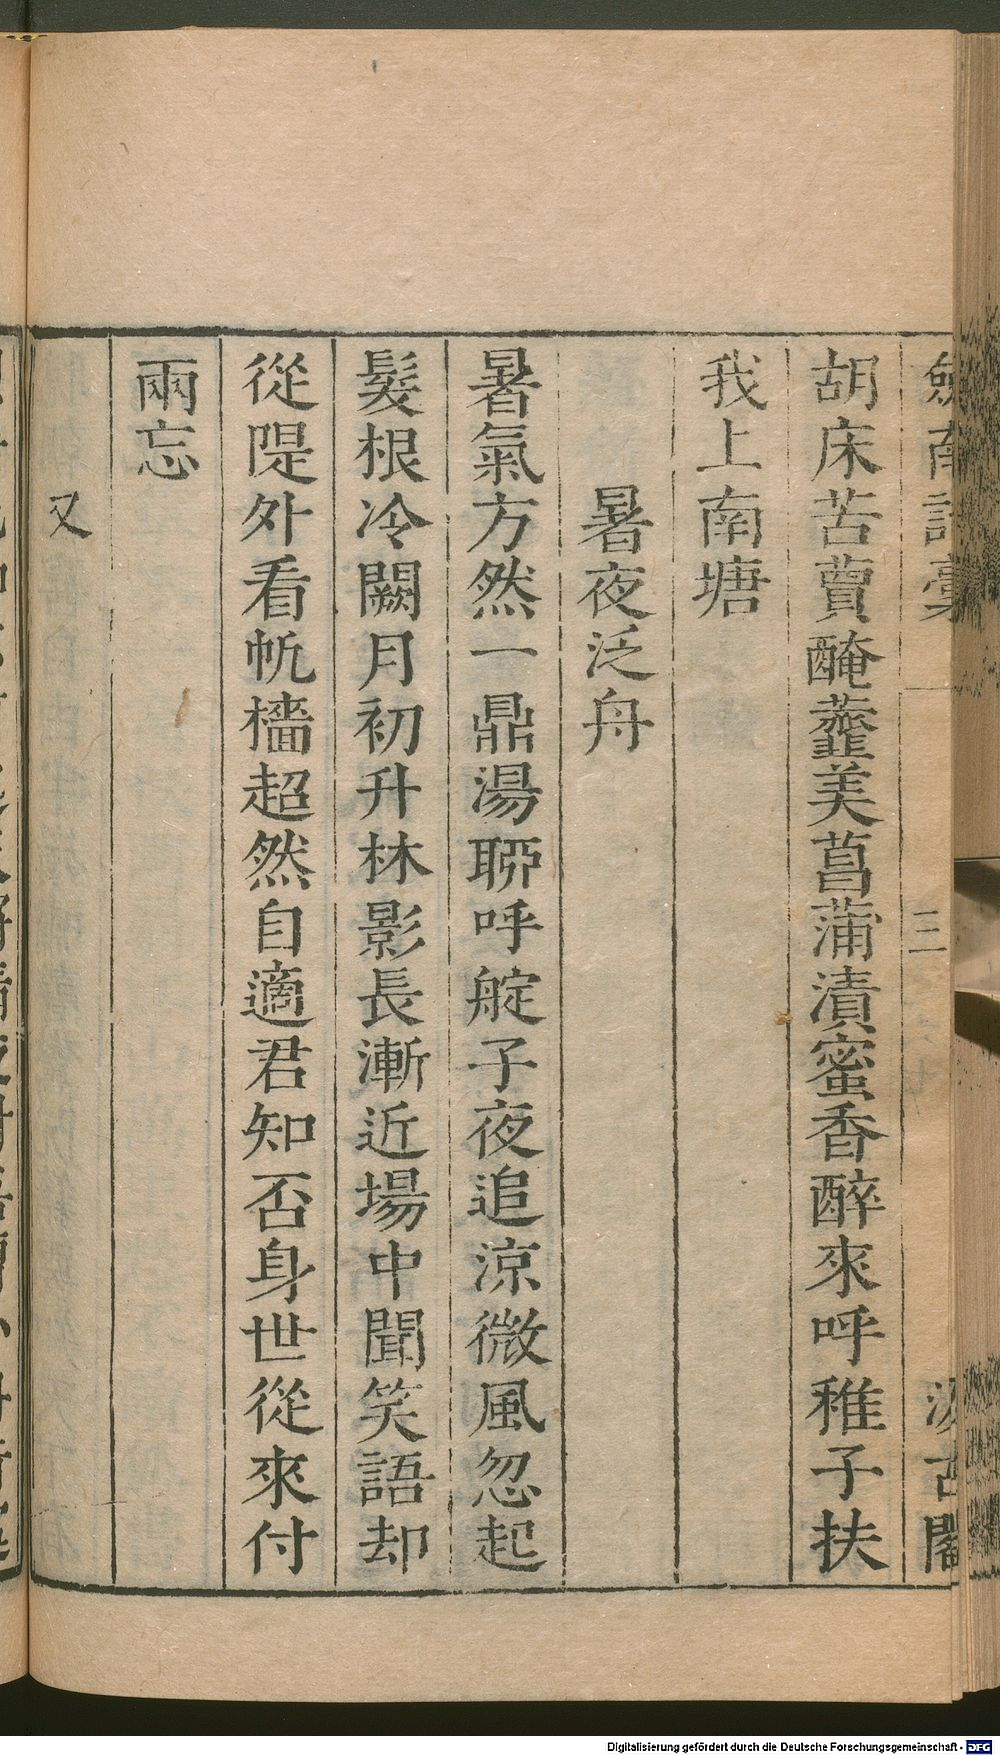 劍南詩稾
三
汲古閣
胡床苦蕒醃虀美菖蒲漬蜜香醉來呼稚子扶
我上南塘
暑夜泛舟
暑氣方然一鼎湯聊呼艇子夜追涼微風忽起
髮根冷闕月初升林影長漸近場中聞笑語却
從隄外看帆檣超然自適君知否身世從來付
兩忘
又
Digitalisierung gefördert durch die Deutsche Forschungsgemeinschaft - DFG